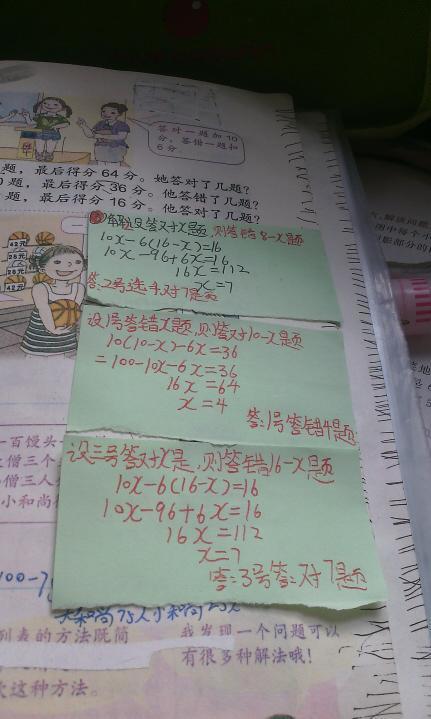 答对一题加10
分，答错一题扣
6分
题，最后得分64分。她答对了几题？
题，最后得分36分。他答错了几题？
题，最后得分16分。他答对了几题？
解设答对x题，则答错8-x题
10x-6(16-x)=16
10x-96+6x=16
16x=112
x=7
答:2号选手对7题
设1号答错x题，则答对10-x题
10(10-x)-6x=36
=100-10x-6x=36
16x=64
x=4
答:1号答错4题
设三号答对x是，则答错16-x题
10x-6(16-x)=16
10x-96+6x=16
16x=112
x=7
答:3号答:对7题
42元
一百馒头
僧三个
僧三人
小和尚
大和尚75人小和尚25人
列表的方法既简
欢这种方法。
我发现一个问题可以
有很多种解法哦！
解决问题
图中每个小